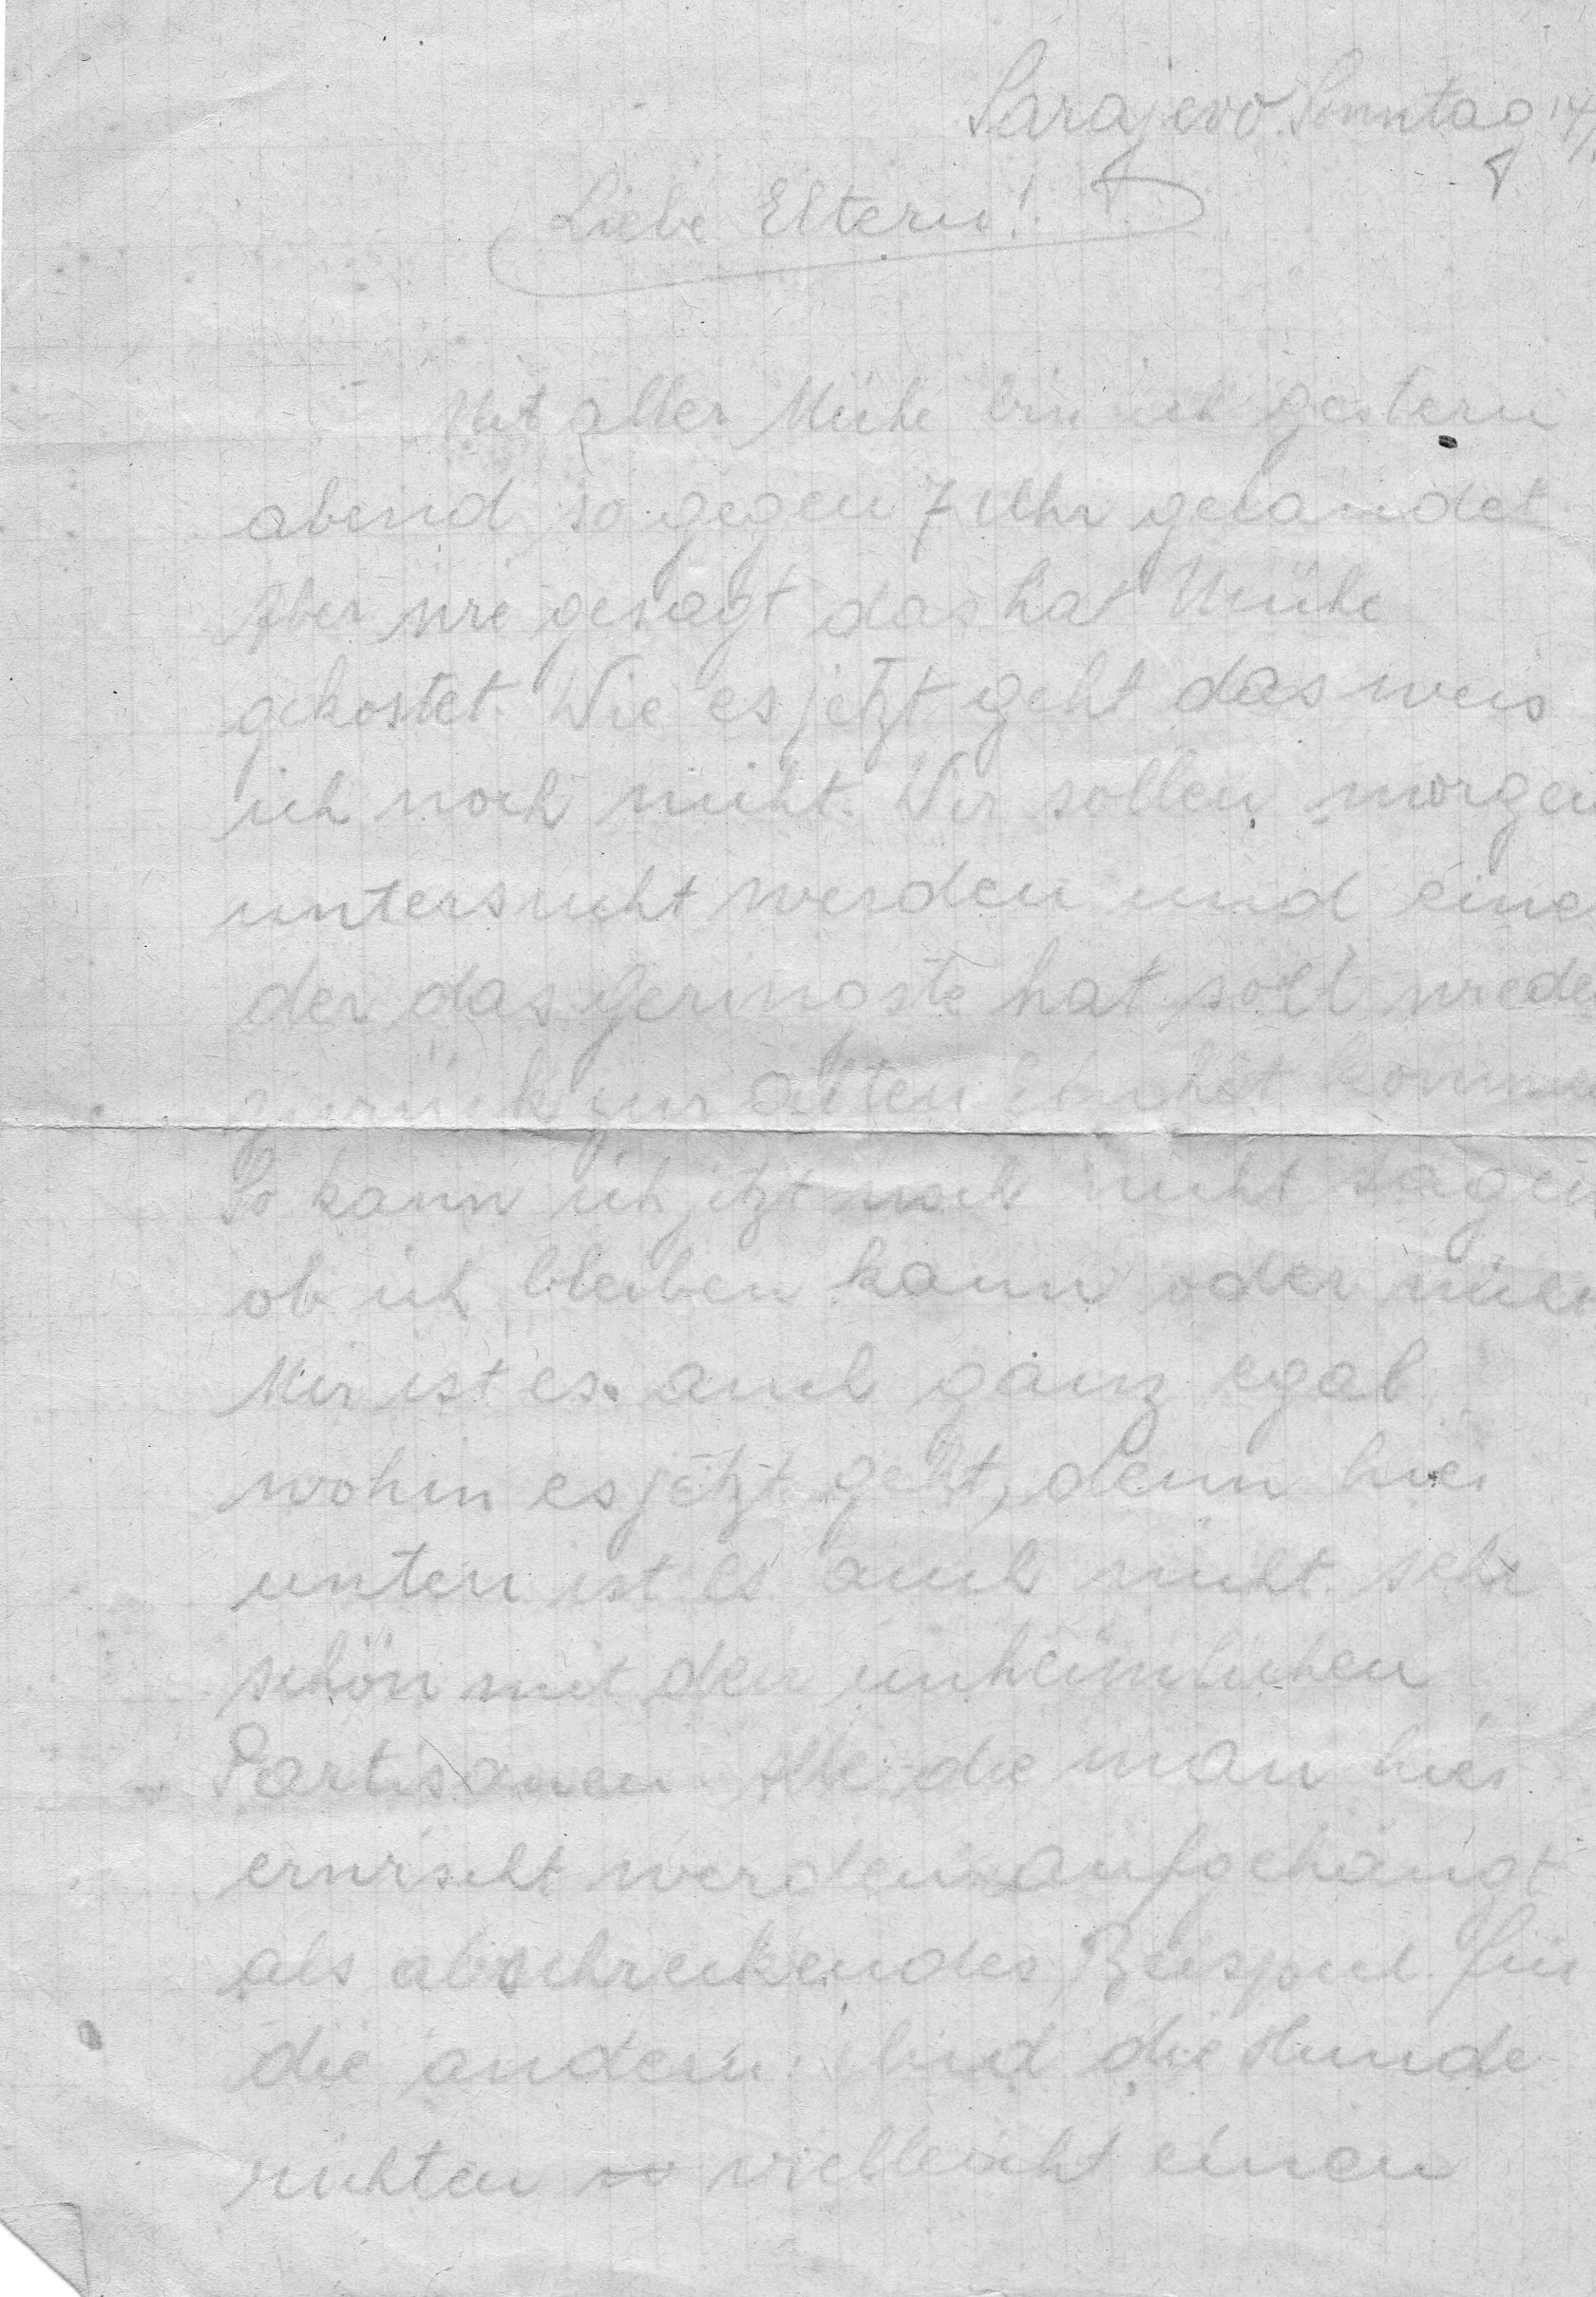 Sarajevo. Sonntag 14/
Liebe Eltern!
Mit aller Mühe bin ich gestern
abend so gegen 7 Uhr gelandet
Aber wie gesagt das hat Mühe
gekostet. Wie es jetzt geht das weis
ich noch nicht. Wir sollen morgen
untersucht werden und eine
der das geringste hat soll wiede
zurück zur alten Einheit komm
So kann ich jetzt noch nicht sagen
ob ich bleiben kann oder
Mir ist es auch ganz egal
wohin es jetzt geht, denn hier
unten ist es auch nicht sehr
schön mit den unheimlichen
Partisanen. Alle die man hier
erwischt werden aufgehängt
als abschreckendes Beispiel für
die andern. Und die Hunde
richten vielleicht einen